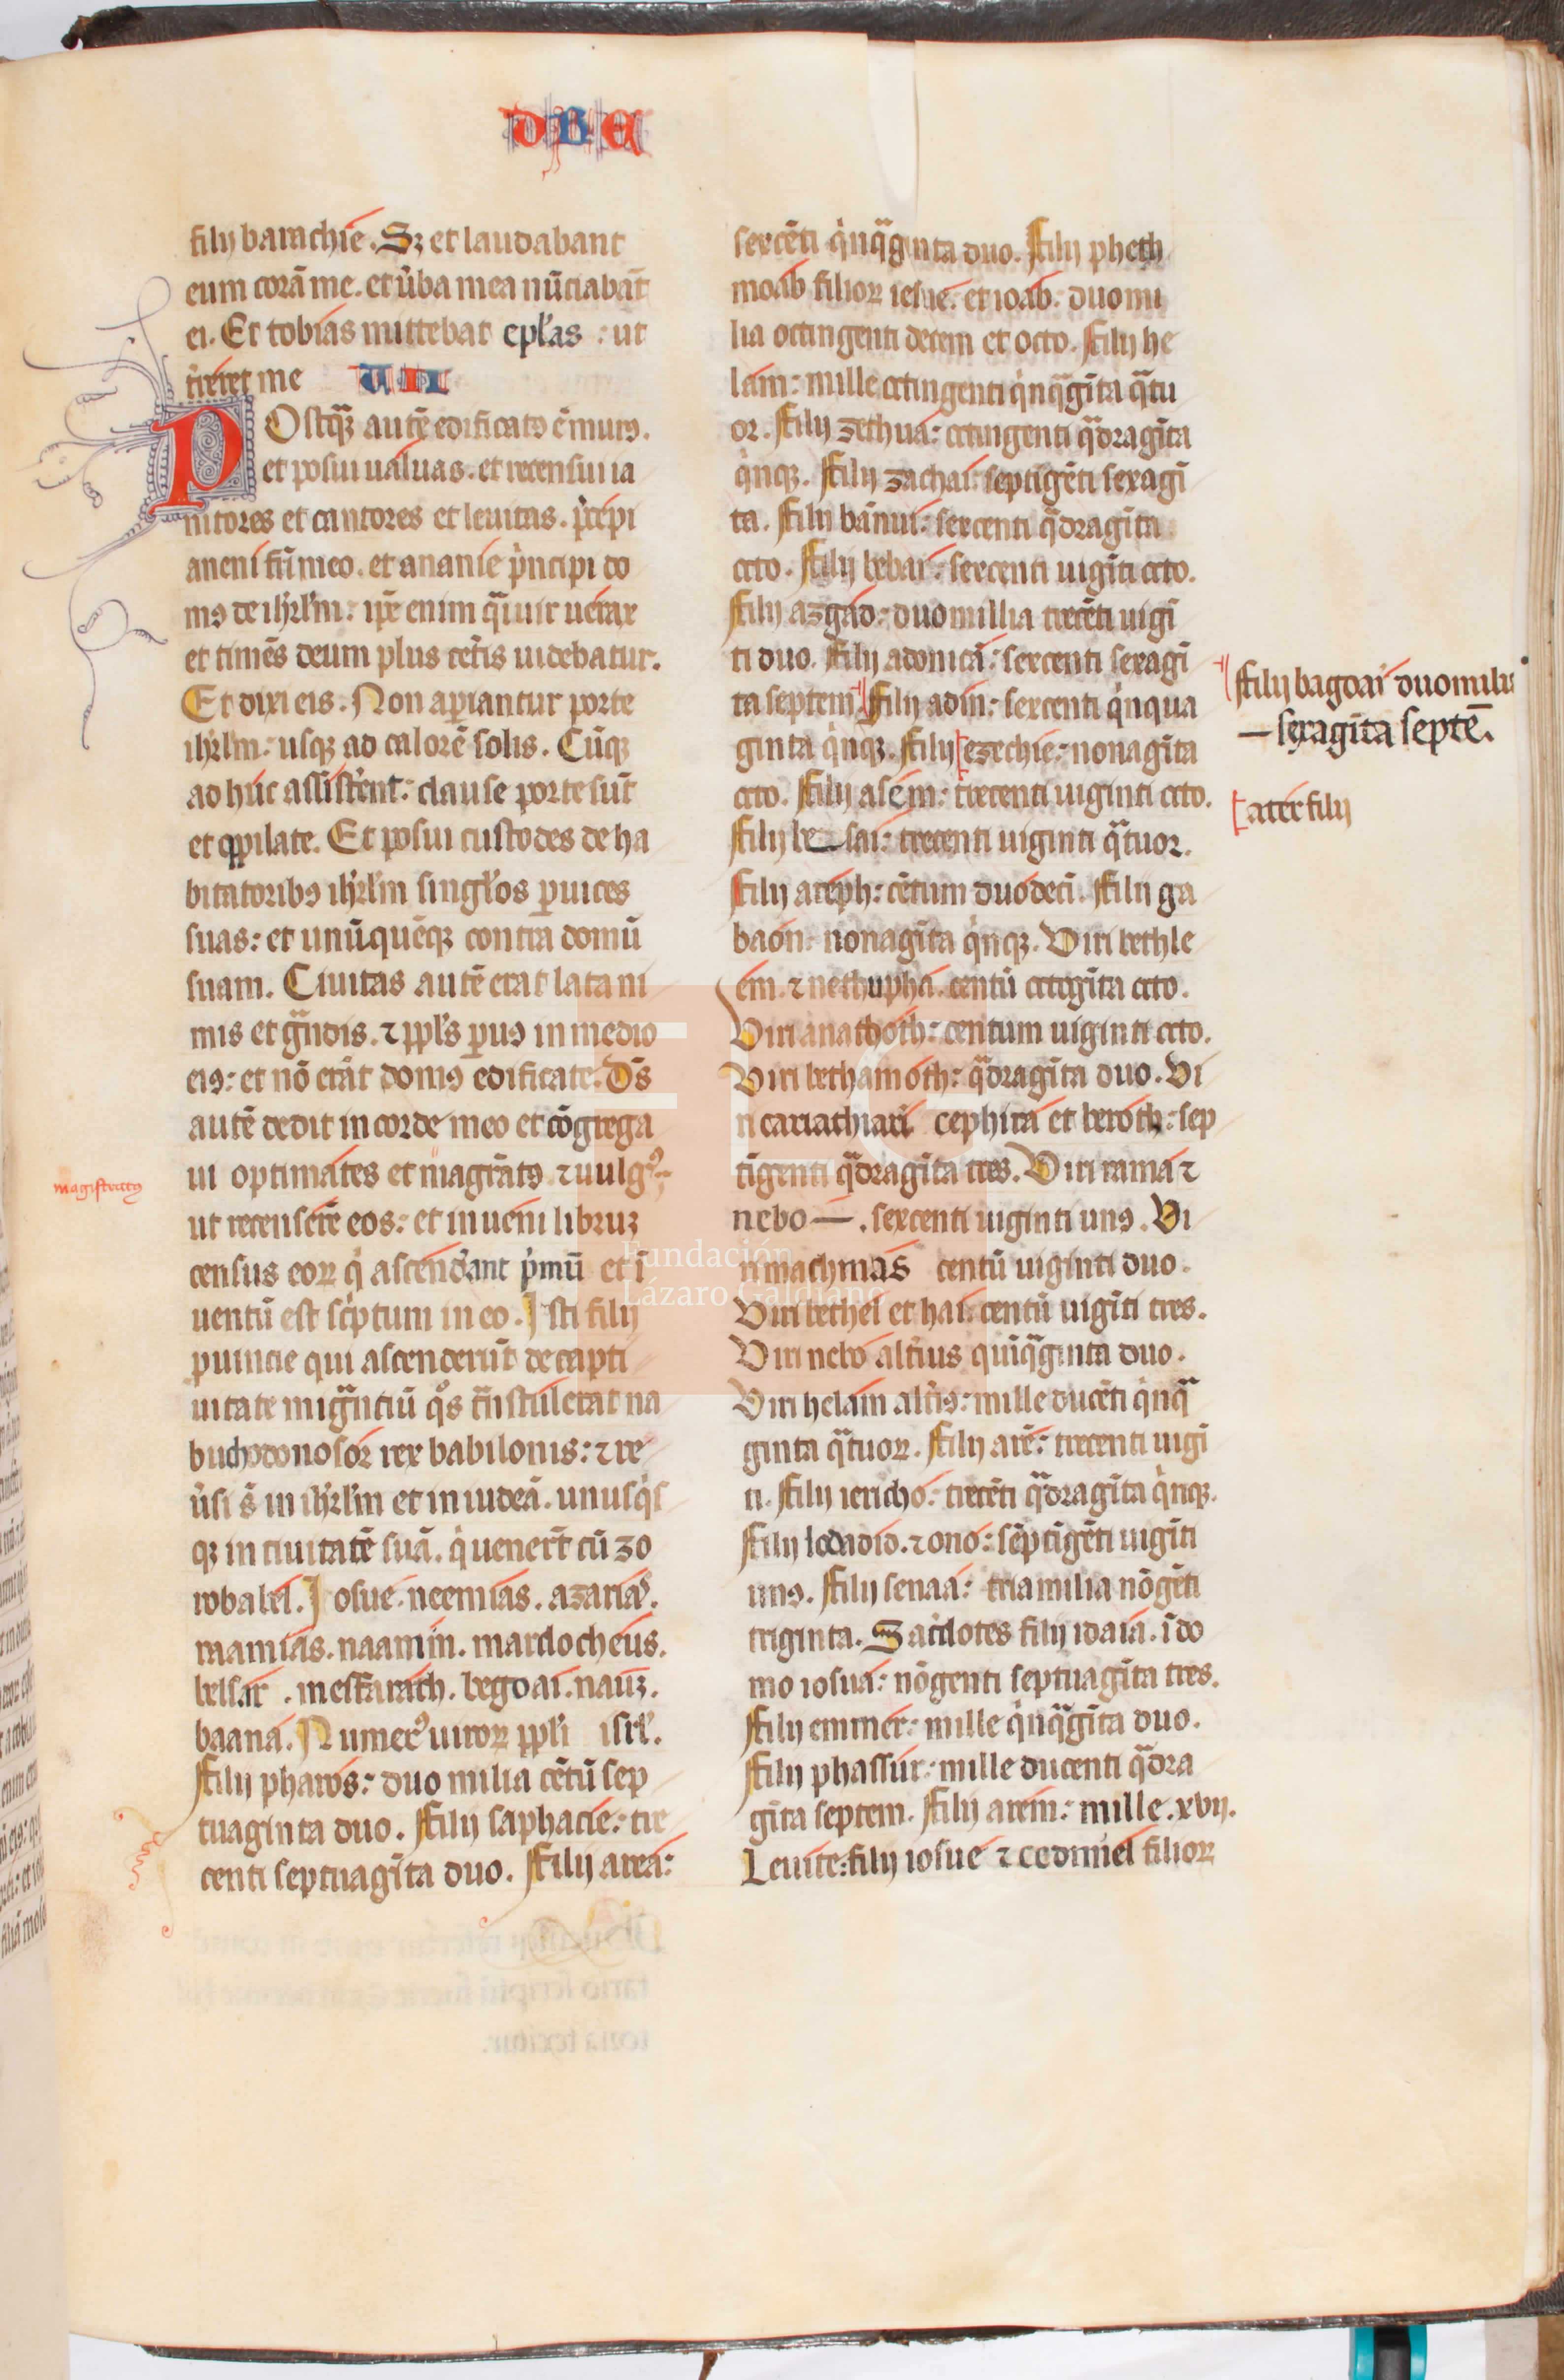 DRE
filij barachie. Sꝫ et laudabant
eum corā me. et ūba mea nūciabāt
ei. Et tobias mittebat epl'as : ut
t̄reret me VII
POstqᷓꝫ autē edificatꝰ ē murꝰ.
et posui ualuas. et recensui ia
nitores et cantores et leuitas. p̄cepi
aneni fr̄i meo. et ananie pͥncipi do
mꝰ de ihr̄l'm: ip̄e enim qᷓi uir uerax
et timēs deum plus cet̄is uidebatur.
Et dixi eis. Non apiantur porte
ihr̄l'm: usqꝫ ad calorē solis. Cūqꝫ
ad huc assist'ent: clause porte sūt
et oppilate. Et posui custodes de ha
bitatoribꝰ ihr̄l'm singl'os p uices
suas: et unūquēqꝫ contra domū
suam. Ciuitas autē erat lata ni
mis et gᷓndis. ⁊ ppl's puꝰ in medio
eiꝰ: et nō erāt domꝰ edificate. Dꝰs
autē dedit in corde meo et cōgrega
ui optimates et magrātꝰ ⁊ uulgꝰ:
magistratꝰ
ut recensere eos: et inueni libruꝫ
census eoꝝ qͥ ascend'ant pͥmū et ī
uentū est sc̄ptum in eo. Isti filij
puincie qui ascenderūt de capti
uitate migᷓntiū qͦs t̄nstulerat na
buchodonosor rex babilonis: ⁊ re
ūsi s̄ in ihr̄l'm et in iudeā. unusqͥs
qꝫ in ciuitatē suā. qͥ uener̄t cū zo
robabel. Iosue. neemias. azarias.
mamias. naamin. mardocheus.
belsar . mesfarath. begoai. nauꝫ.
baana. Numerꝰ uiroꝝ ppl'i isrl'.
Filij pharos: duo milia cētū sep
tuaginta duo. Filij saphacie: tre
centi septuagīta duo. Filij area:
sexcēti qͥnqᷓginta duo. Filij pheth
moab filioꝝ iesue. et ioab: duo mi
lia octingenti decem et octo. Filij he
lam: mille octingenti qͥnqᷓgīta qᷓtu
or. Filij zethua: octingenti qᷓdragīta
qͥnqꝫ. Filij zachai: septīgēti sexagī
ta. Filij bannui: sexcenti qᷓdragīta
octo. Filij bebai: sexcenti uigīti octo.
Filij azgad: duo millia trecēti uigī
ti duo. Filij adonicā: sexcenti sexagī
ta septem Filij adin: sexcenti qͥnqua
Filij bagoai duomilia
— sexagīta septē.
ginta qͥnqꝫ. Filij ezechie: nonagīta
ater filij
octo. Filij asem: trecenti uiginti octo.
Filij be—sai: trecenti uiginti qᷓtuor.
Filij areph: cētum duodecī. Filij ga
baon: nonagīta qͥnqꝫ. Viri bethle
em. ⁊ nethupha. centū octogīta octo.
Viri anathoth: centum uiginti octo.
Viri bethamoth: qᷓdragīta duo. Vi
ri cariathiari cephira et beroth: sep
tīgenti qᷓdragīta tres. Viri rama ⁊
nebo —. sexcenti uiginti unꝰ. Vi
ri machmas centū uiginti duo.
Viri bethel et hai: centū uigīti tres.
Viri nebo altius quīqᷓginta duo.
Viri helam alt̄iꝰ: mille ducēti qͥnqᷓ
ginta qᷓtuor. Filij arē: trecenti uigī
ti. Filij iericho: trecēti qᷓdragīta qͥnqꝫ.
Filij lodadid. ⁊ ono: sēptīgēti uigīti
unꝰ. Filij senaa: tria milia nōgēti
triginta. Sac̄dotes filij idaia. ī do
mo iosua: nōgenti septuagīta tres.
Filij emmer: mille qͥnqᷓgīta duo.
Filij phassur: mille ducenti qᷓdra
gīta septem. Filij arem: mille .xvij.
Leuite: filij iosue ⁊ cedmiel filioꝝ
Fundación
Lázaro Galdiano